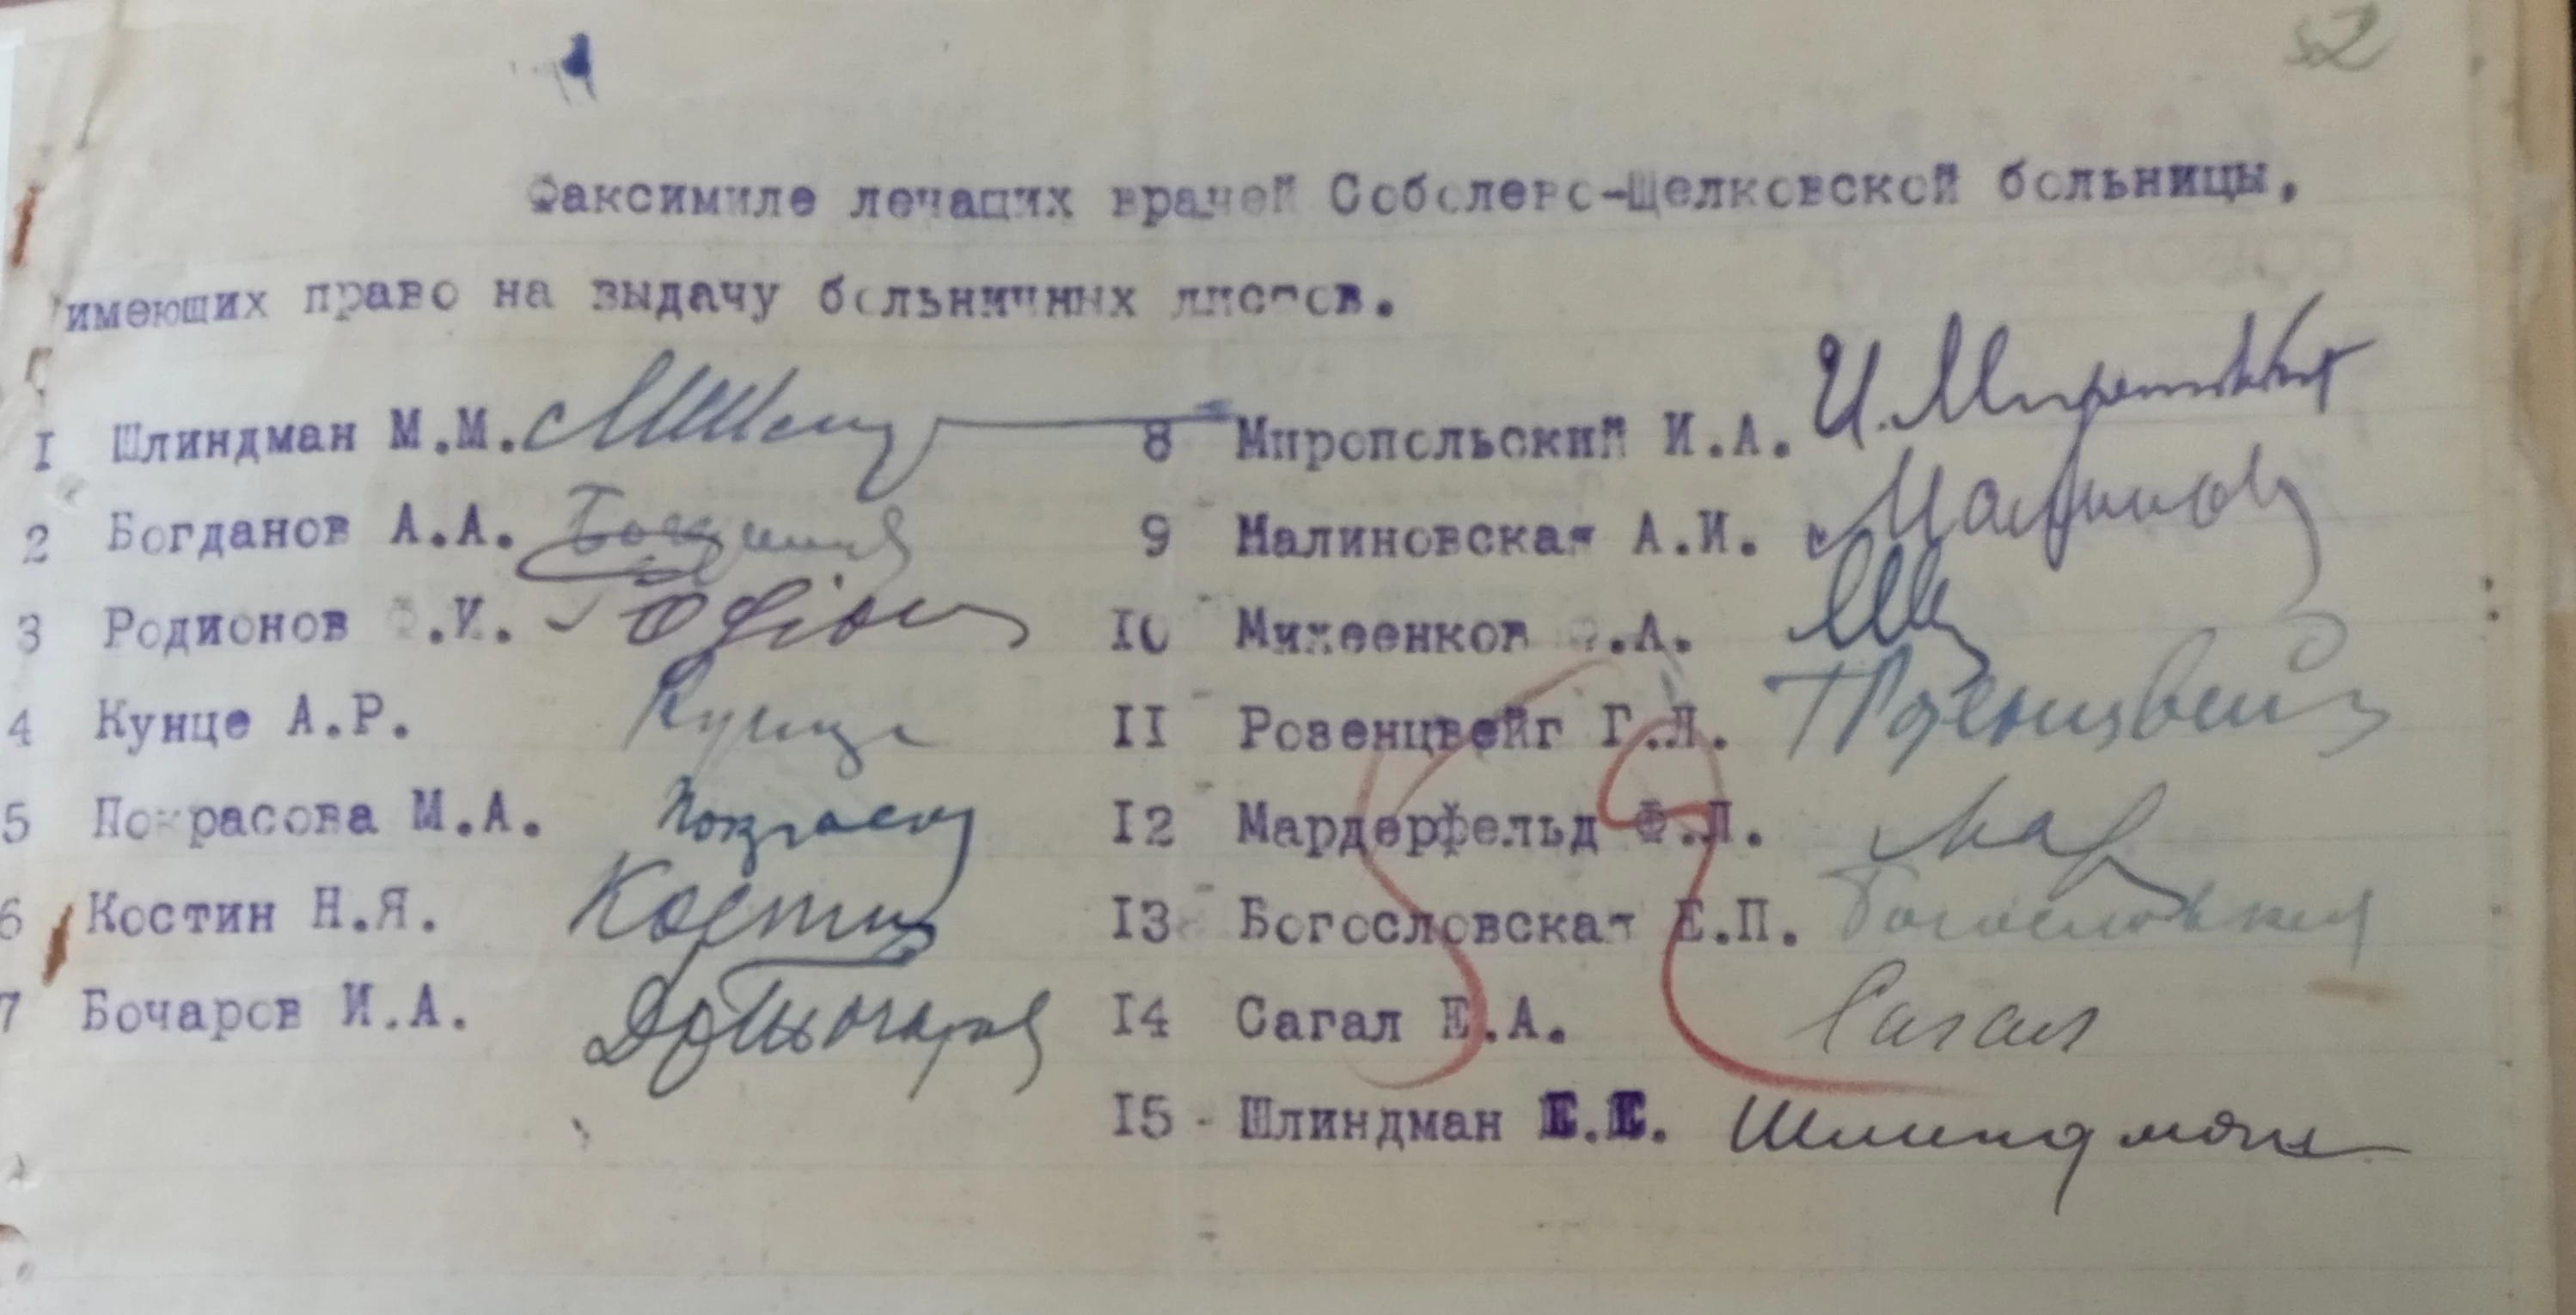 52
Факсимиле лечащих врачей Соболево-Щелковской больницы,
имеющих право на выдачу больничных листов.
I Шлиндман М.М.
2 Богданов А.А.
3 Родионов Ф.И.
4 Кунце А.Р. Кунце
5 Покрасова М.А.
6 Костин Н.Я. Костин
7 Бочаров И.А.
8 Миропольский И.А.
9 Малиновская А.И.
I0 Михеенков .А.
II Розенцвейг Г.Л. Розенцвейг
I2 Мардерфельд Ф.Л. Мар
I3 Богословская Е.П. Богословская
I4 Сагал Е.А. Сагал
I5 - Шлиндман Е.Е. Шлиндман